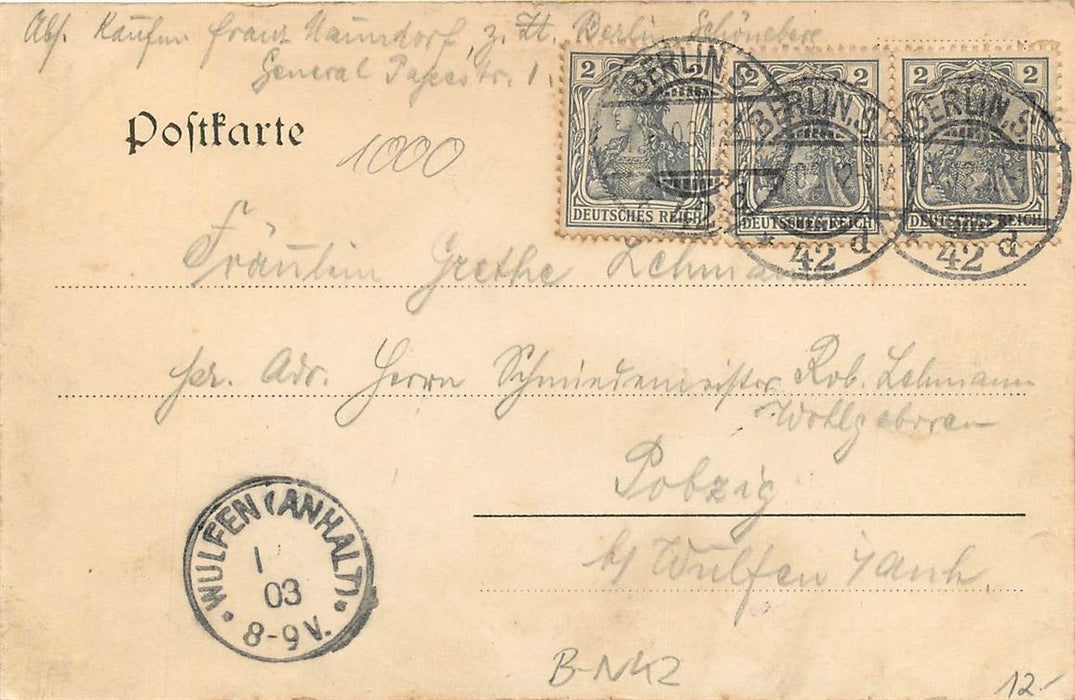 Abs. Kaufm. Franz Naundorf, z. Zt. Berlin Schöneberg
General Papestr. 1.
2 2 2 2 2 2
DEUTSCHES REICH DEUTSCHES REICH DEUTSCHES REICH
BERLIN.S BERLIN.S. BERLIN.S.
* 42 d * 42 d
Postkarte
1000
Fräulein Grethe Lehmann
per. Adr. Herrn Schmiedemeister Rob. Lehmann
Wohlgeboren
Pobzig
b/ Wulfen i/Anh.
* WULFEN (ANHALT) *
03
8-9 V.
B-NK2
12.-